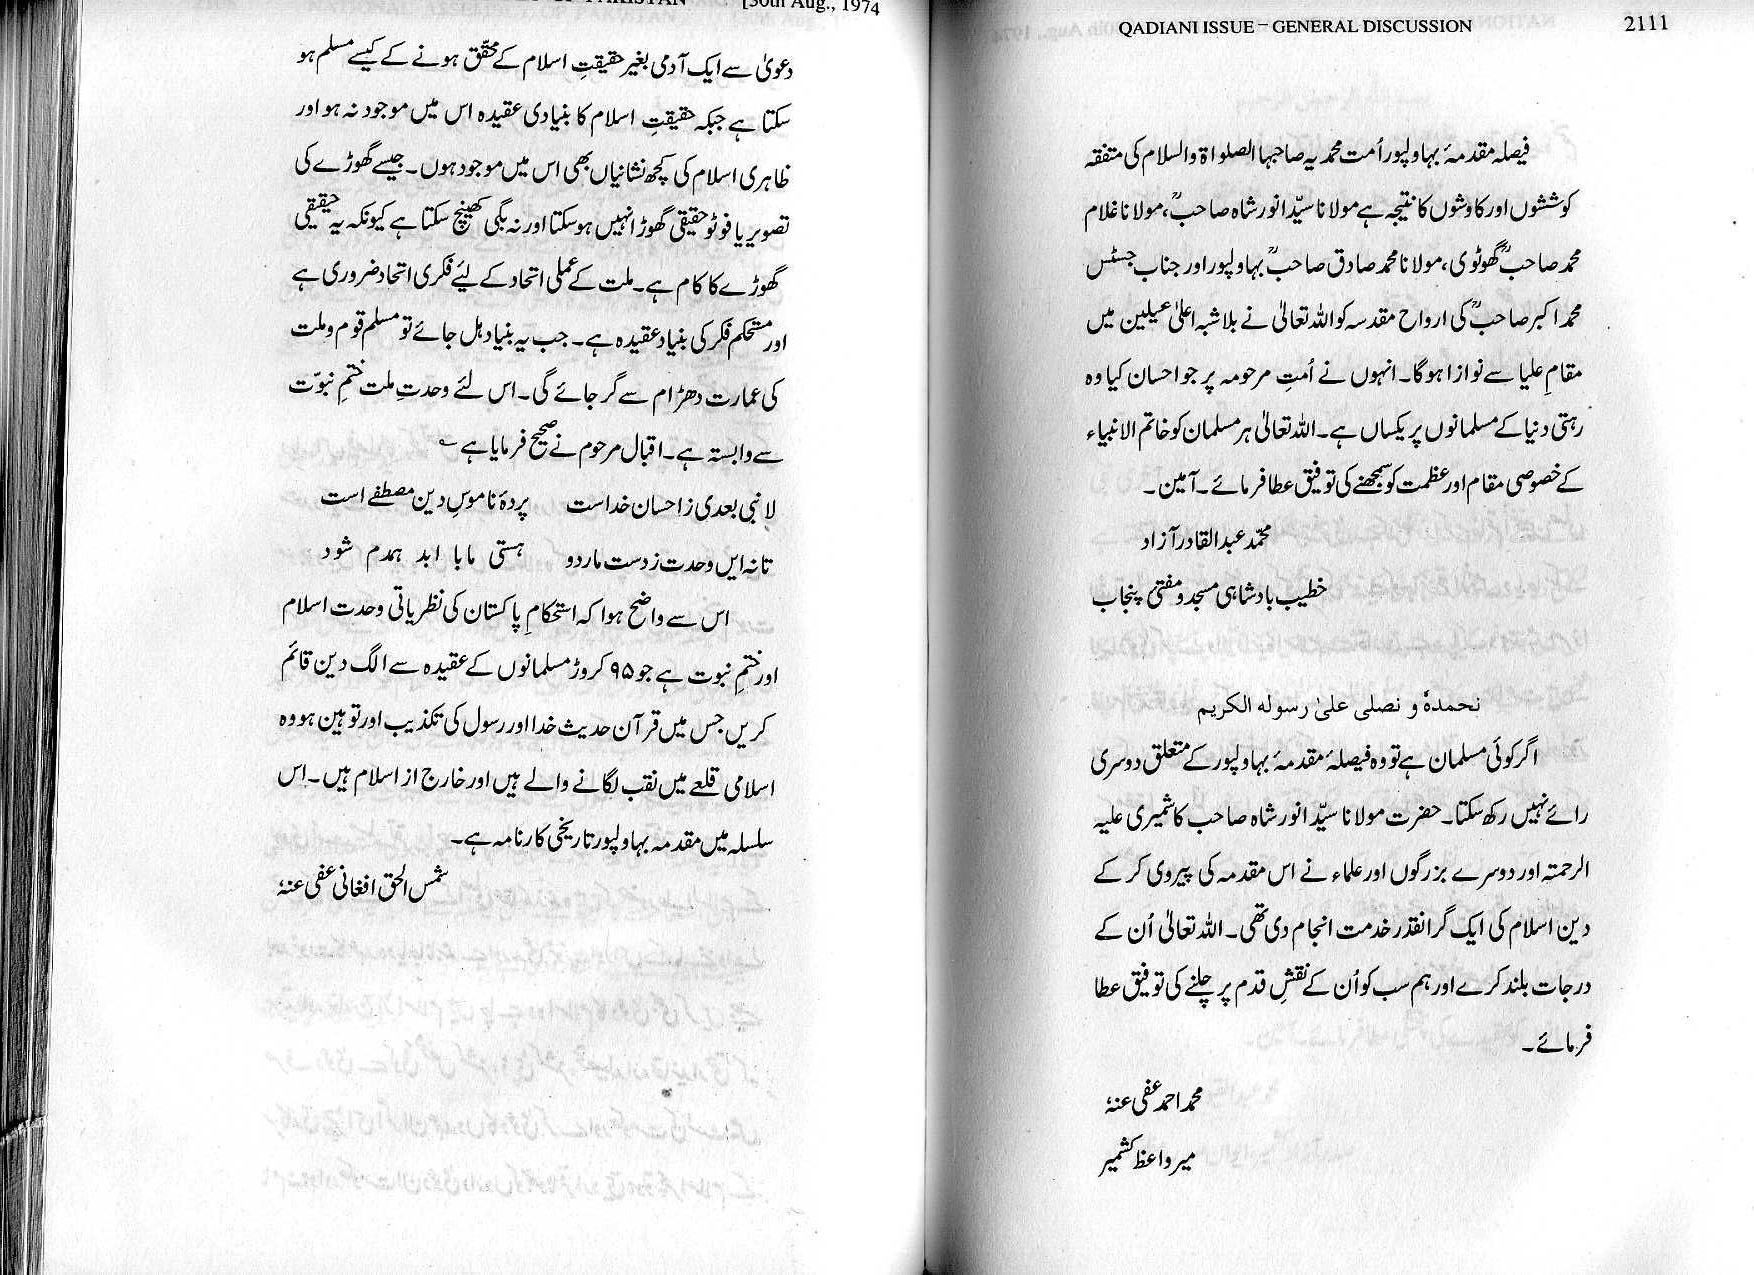 PAKISTAN [30th Aug., 1974
دعویٰ سے ایک آدمی بغیر حقیقتِ اسلام کے محقق ہونے کے کیسے مسلم ہو
سکتا ہے جبکہ حقیقتِ اسلام کا بنیادی عقیدہ اس میں موجود نہ ہو اور
ظاہری اسلام کی کچھ نشانیاں بھی اس میں موجود ہوں۔ جیسے گھوڑے کی
تصویر یا فوٹو حقیقی گھوڑا نہیں ہو سکتا اور نہ بگی کھینچ سکتا ہے کیونکہ یہ حقیقی
گھوڑے کا کام ہے۔ ملت کے عملی اتحاد کے لیئے فکری اتحاد ضروری ہے
اور مستحکم فکر کی بنیاد عقیدہ ہے۔ جب یہ بنیاد ہل جائے تو مسلم قوم و ملت
کی عمارت دھڑام سے گر جائے گی۔ اس لئے وحدتِ ملت ختمِ نبوّت
سے وابستہ ہے۔ اقبال مرحوم نے صحیح فرمایا ہے ؎
لا نبی بعدی ز احسان خداست پردۂ ناموسِ دین مصطفےٰ است
تا نہ ایں وحدت ز دست ما رود ہستی ما با ابد ہمدم شود
اس سے واضح ہوا کہ استحکامِ پاکستان کی نظریاتی وحدت اسلام
اور ختمِ نبوت ہے جو ۹۵ کروڑ مسلمانوں کے عقیدہ سے الگ دین قائم
کریں جس میں قرآن حدیث خدا اور رسول کی تکذیب اور توہین ہو وہ
اسلامی قلعے میں نقب لگانے والے ہیں اور خارج از اسلام ہیں۔ اس
سلسلہ میں مقدمہ بہاولپور تاریخی کارنامہ ہے۔
شمس الحق افغانی عفی عنہٗ
QADIANI ISSUE – GENERAL DISCUSSION 2111
فیصلہ مقدمۂ بہاولپور اُمت محمدیہ صاحبہا الصلواۃ والسلام کی متفقہ
کوششوں اور کاوشوں کا نتیجہ ہے مولانا سیّد انور شاہ صاحبؒ، مولانا غلام
محمد صاحبؒ گھوٹوی، مولانا محمد صادق صاحبؒ بہاولپور اور جناب جسٹس
محمد اکبر صاحبؒ کی ارواح مقدسہ کو اللہ تعالیٰ نے بلاشبہ اعلیٰ عیلین میں
مقامِ علیا سے نوازا ہوگا۔ انہوں نے اُمتِ مرحومہ پر جو احسان کیا وہ
رہتی دنیا کے مسلمانوں پر یکساں ہے۔ اللہ تعالیٰ ہر مسلمان کو خاتم الانبیاء
کے خصوصی مقام اور عظمت کو سمجھنے کی توفیق عطا فرمائے۔ آمین۔
محمّد عبد القادر آزاد
خطیب بادشاہی مسجد و مفتیٔ پنجاب
نحمدہٗ و نصلی علیٰ رسولہ الکریم
اگر کوئی مسلمان ہے تو وہ فیصلۂ مقدمۂ بہاولپور کے متعلق دوسری
رائے نہیں رکھ سکتا۔ حضرت مولانا سیّد انور شاہ صاحب کاشمیری علیہ
الرحمتہ اور دوسرے بزرگوں اور علماء نے اس مقدمہ کی پیروی کر کے
دین اسلام کی ایک گرانقدر خدمت انجام دی تھی۔ اللہ تعالیٰ اُن کے
درجات بلند کرے اور ہم سب کو اُن کے نقشِ قدم پر چلنے کی توفیق عطا
فرمائے۔
محمد احمد عفی عنہٗ
میر واعظ کشمیر